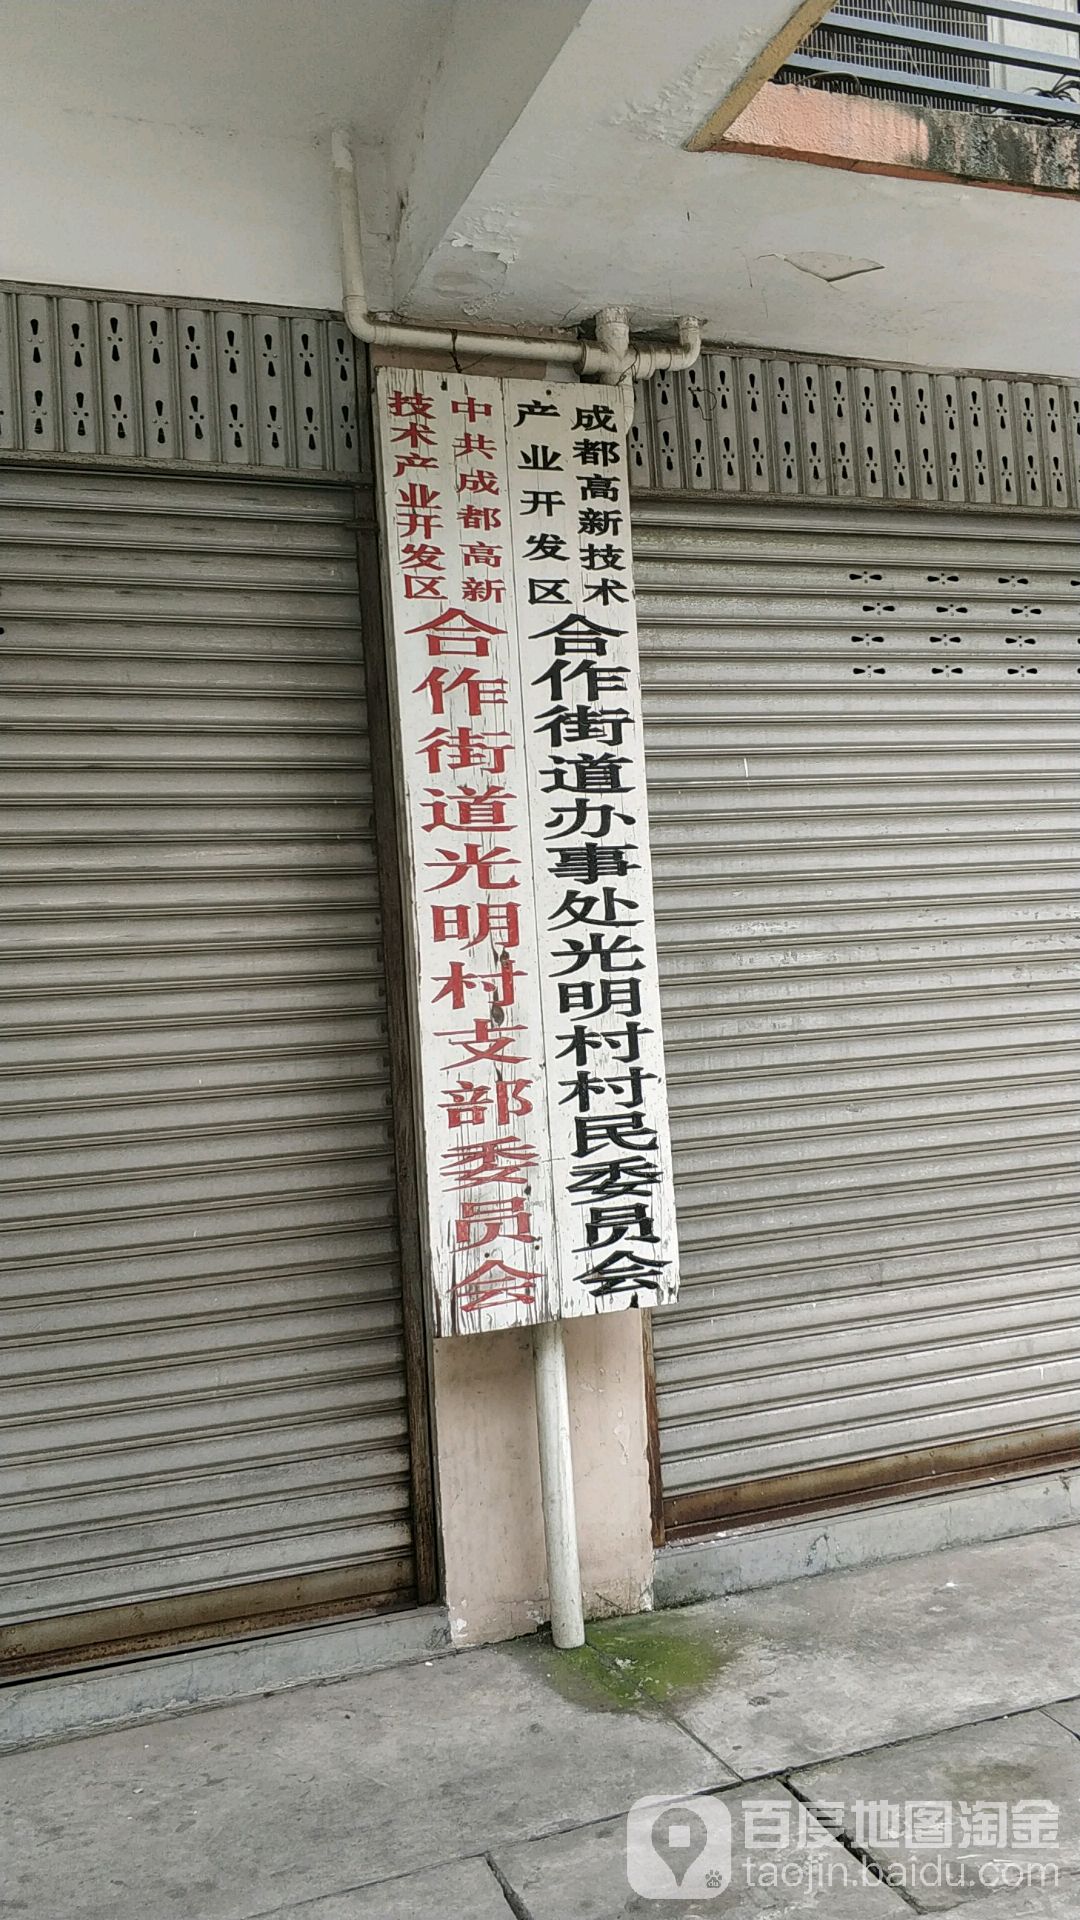 成都高新技术
产业开发区
合作街道办事处光明村村民委员会
中共成都高新
技术产业开发区
合作街道光明村支部委员会
百度地图淘金
taojin.baidu.com